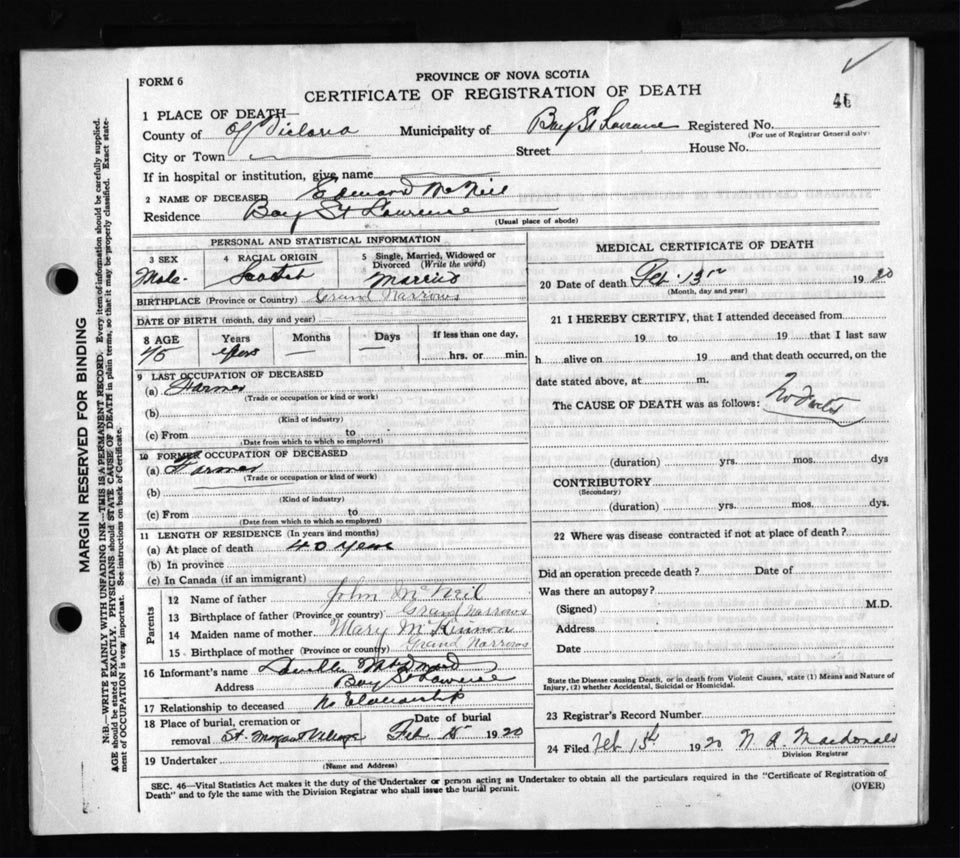 FORM 6
PROVINCE OF NOVA SCOTIA
CERTIFICATE OF REGISTRATION OF DEATH
46
1 PLACE OF DEATH—
County of Of Victoria Municipality of Bay St Lawrence Registered No.
(For use of Registrar General only)
City or Town Street House No.
If in hospital or institution, give name
2 NAME OF DECEASED Edward McNeil
Residence Bay St Lawrence
(Usual place of abode)
PERSONAL AND STATISTICAL INFORMATION
3 SEX 4 RACIAL ORIGIN 5 Single, Married, Widowed or Divorced (Write the word)
Male Scotch Married
BIRTHPLACE (Province or Country) Grand Narrows
DATE OF BIRTH (month, day and year)
8 AGE Years Months Days If less than one day,
75 years — — hrs. or min.
9 LAST OCCUPATION OF DECEASED
(a) Farmer
(Trade or occupation or kind or work)
(b)
(Kind of industry)
(c) From to
(Date from which to which so employed)
10 FORMER OCCUPATION OF DECEASED
(a) Farmer
(Trade or occupation or kind of work)
(b)
(Kind of industry)
(c) From to
(Date from which to which so employed)
11 LENGTH OF RESIDENCE (In years and months)
(a) At place of death 40 years
(b) In province
(c) In Canada (if an immigrant)
Parents
12 Name of father John McNeil
13 Birthplace of father (Province or country) Grand Narrows
14 Maiden name of mother Mary McKinnon
15 Birthplace of mother (Province or country) Grand Narrows
16 Informant's name
Address Bay St Lawrence
17 Relationship to deceased No Relationship
18 Place of burial, cremation or removal St. Margaret Village Date of burial Feb 15 1920
19 Undertaker
(Name and Address)
MEDICAL CERTIFICATE OF DEATH
20 Date of death Feb. 13 1920
(Month, day and year)
21 I HEREBY CERTIFY, that I attended deceased from
19 to 19 that I last saw
h alive on 19 and that death occurred, on the
date stated above, at m.
The CAUSE OF DEATH was as follows: No Doctor
(duration) yrs. mos. dys
CONTRIBUTORY
(Secondary)
(duration) yrs. mos. dys.
22 Where was disease contracted if not at place of death?
Did an operation precede death? Date of
Was there an autopsy?
(Signed) M.D.
Address
Date
State the Disease causing Death, or in death from Violent Causes, state (1) Means and Nature of
Injury, (2) whether Accidental, Suicidal or Homicidal.
23 Registrar's Record Number
24 Filed Feb 15 1920 Macdonald
Division Registrar
SEC. 46—Vital Statistics Act makes it the duty of the Undertaker or person acting as Undertaker to obtain all the particulars required in the "Certificate of Registration of
Death" and to fyle the same with the Division Registrar who shall issue the burial permit.
(OVER)
MARGIN RESERVED FOR BINDING
N.B.—WRITE PLAINLY WITH UNFADING INK—THIS IS A PERMANENT RECORD. Every item of information should be carefully supplied.
AGE should be stated EXACTLY. PHYSICIANS should STATE CAUSE OF DEATH in plain terms, so that it may be properly classified. Exact state-
ment of OCCUPATION is very important. See instructions on back of Certificate.